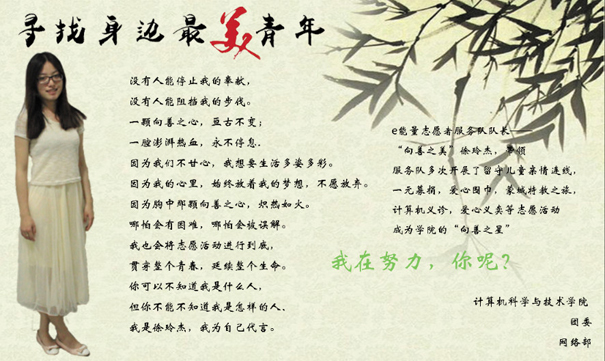 寻找身边最美青年
没有人能停止我的奉献，
没有人能阻挡我的步伐。
一颗向善之心，亘古不变；
一腔澎湃热血，永不停息。
因为我们不甘心，我想要生活多姿多彩。
因为我的心里，始终放着我的梦想，不愿放弃。
因为胸中那颗向善之心，炽热如火。
哪怕会有困难，哪怕会被误解。
我也会将志愿活动进行到底，
贯穿整个青春，延续整个生命。
你可以不知道我是什么人，
但你不能不知道我是怎样的人、
我是徐玲杰，我为自己代言。
e能量志愿者服务队队长——
“向善之美”徐玲杰，带领
服务队多次开展了留守儿童亲情连线，
一元募捐，爱心围巾，蒙城特教之旅，
计算机义诊，爱心义卖等志愿活动
成为学院的“向善之星”
我在努力，你呢？
计算机科学与技术学院
团委
网络部